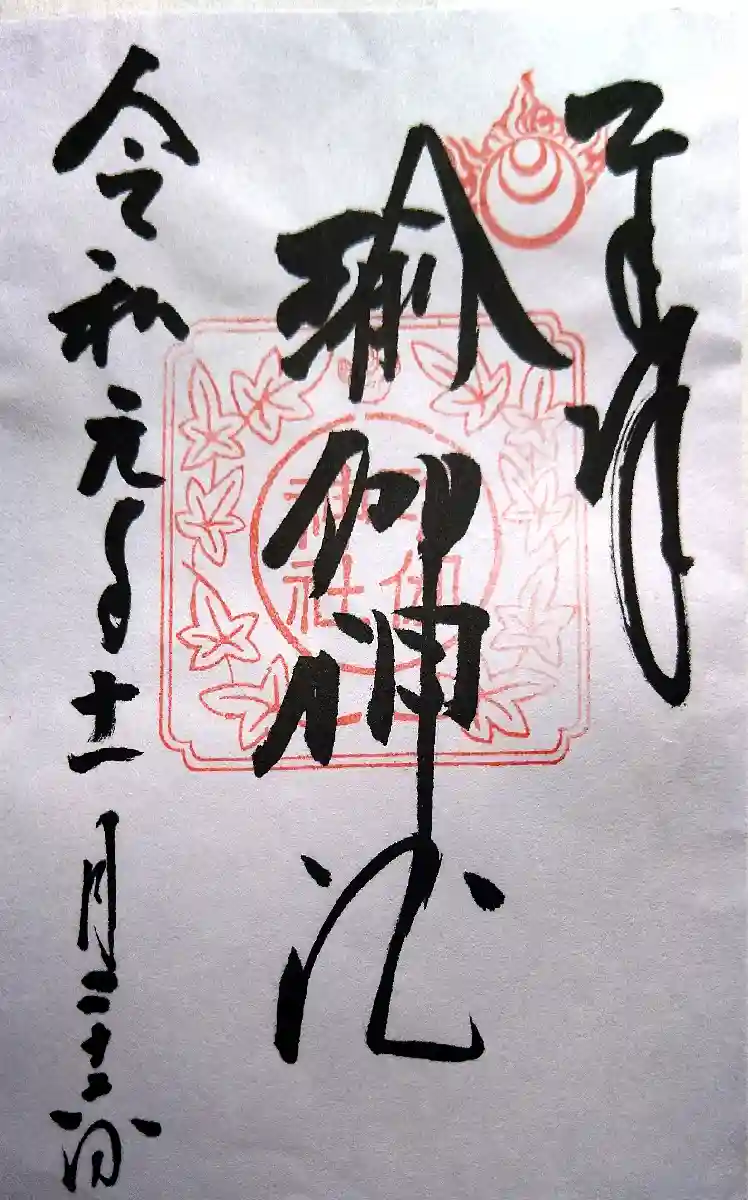 奉拝
瑜伽神社
令和元年十一月二十日
瑜伽
神社